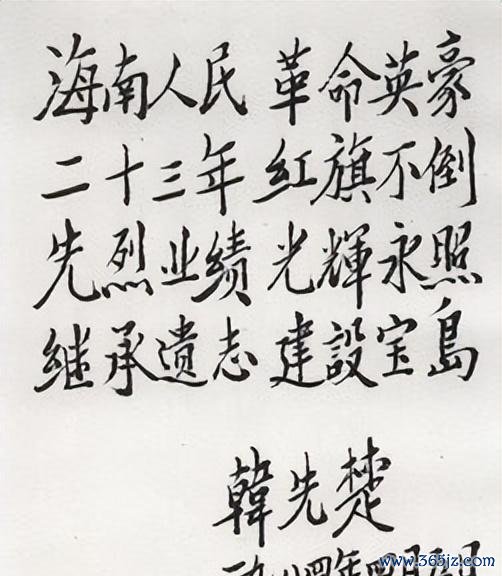 海南人民 革命英豪
二十三年 紅旗不倒
先烈业绩 光輝永照
继承遗志 建設宝島
韓先楚
一九八四年四月
www.365jz.com